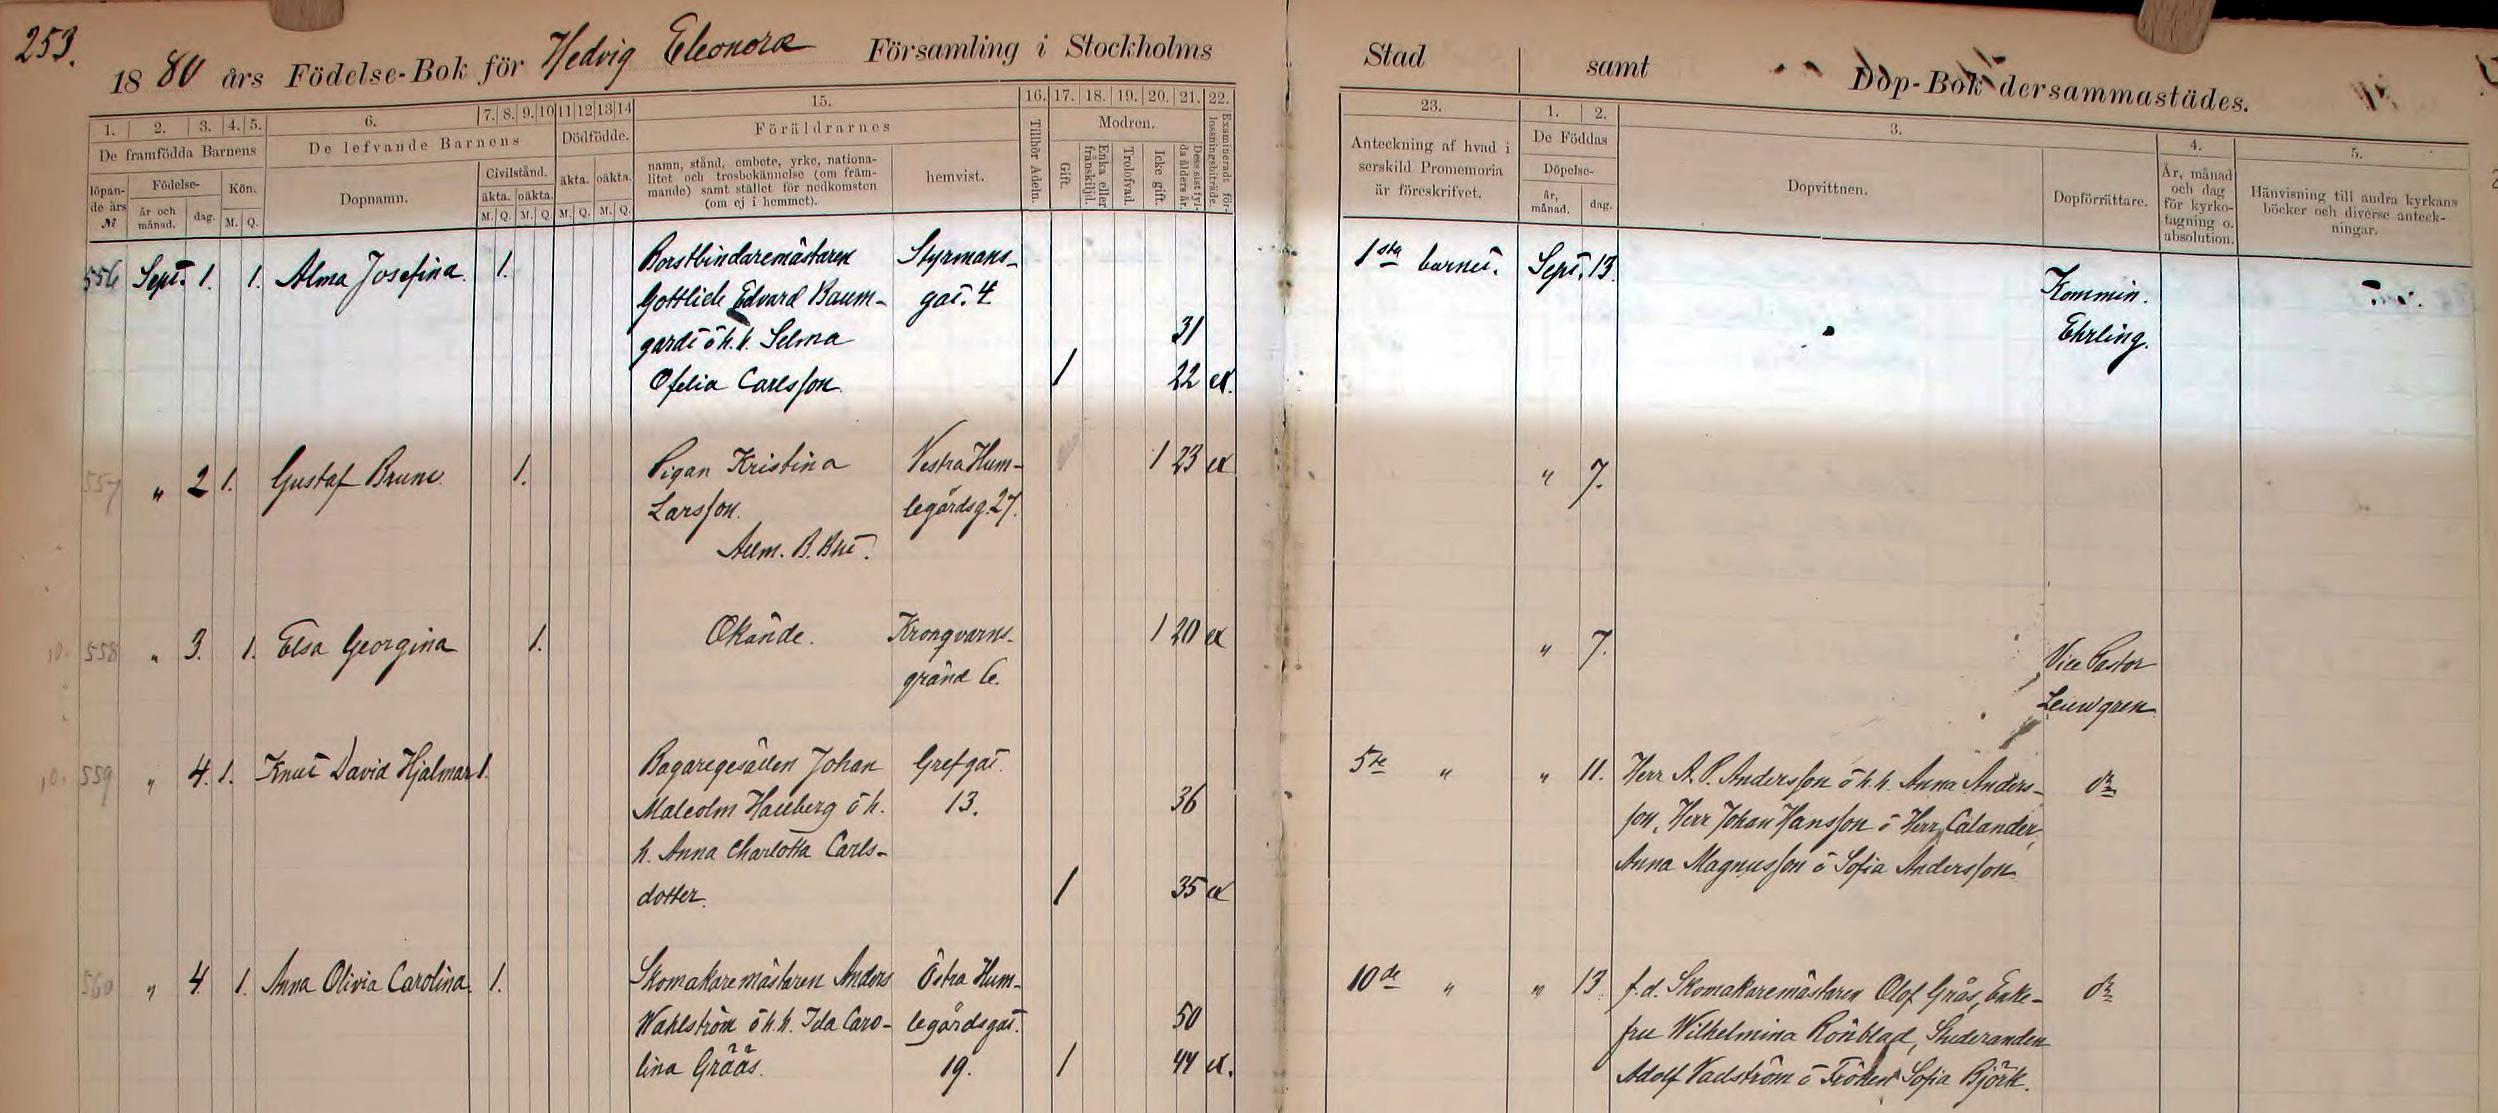 253.
1880 års Födelse-Bok för Hedvig Eleonora Församling i Stockholms
Stad samt Dop-Bok dersammastädes.
1. 2. 3. 4. 5. 6. 7. 8. 9. 10 11 12 13 14 15. 16. 17. 18. 19. 20. 21. 22.
De framfödda Barnens
De lefvande Barnens
Dödfödde.
Föräldrarnes
Modren.
löpan-
de års
№
Födelse-
år och
månad.
dag.
Kön.
M. Q.
Dopnamn.
Civilstånd.
äkta. oäkta.
M. Q. M. Q.
äkta. oäkta.
M. Q. M. Q.
namn, stånd, embete, yrke, nationa-
litet och trosbekännelse (om främ-
mande) samt stället för nedkomsten
(om ej i hemmet).
hemvist.
Tillhör Adeln.
Gift.
Enka eller
frånskiljd.
Trolofvad.
Icke gift.
Dess sist fyl-
da ålders år.
Examineradt för-
lossningsbiträde.
23. 1. 2. 3. 4. 5.
Anteckning af hvad i
serskild Promemoria
är föreskrifvet.
De Föddas
Döpelse-
år,
månad.
dag.
Dopvittnen.
Dopförrättare.
År, månad
och dag
för kyrko-
tagning o.
absolution.
Hänvisning till andra kyrkans
böcker och diverse anteck-
ningar.
556 Sept. 1. 1. Alma Josefina. 1.
Borstbindaremästaren
Gottlieb Edvard Baum-
gardt o h. h. Selma
Ofelia Carlsson.
Styrmans-
gat. 4
31
1 22 ex.
1sta barnet. Sept. 13.
Kommin.
Ehrling.
557 " 2 1. Gustaf Bruno. 1.
Pigan Kristina
Larsson.
Allm. B. Bht.
Vestra Hum-
legårdsg. 27.
1 23 ex
" 7.
558 " 3. 1. Elsa Georgina 1.
Okände.
Kronqvarns-
gränd 6.
1 20 ex
" 7.
Vice Pastor
559 " 4. 1. Knut David Hjalmar 1.
Bagaregesällen Johan
Malcolm Hallberg o h.
h. Anna Charlotta Carls-
dotter.
Grefgat.
13.
36
1 35 ex
5te " " 11.
Herr A. P. Andersson o h. h. Anna Anders-
son, Herr Johan Hansson o Herr Calander,
Anna Magnusson o Sofia Andersson.
do
560 " 4 1. Anna Olivia Carolina. 1.
Skomakaremästaren Anders
Wahlström o h. h. Ida Caro-
lina Grääs.
Östra Hum-
legårdsgat.
19.
50
1 44 ex.
10de " " 13.
f. d. Skomakaremästaren Olof Grås, Enke-
fru Wilhelmina Rönblad, Studeranden
Adolf Valström o Fröken Sofia Björk.
do